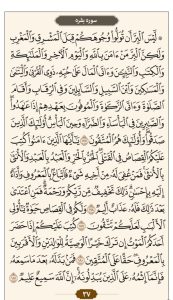 سوره بقره
۞ لَّيْسَ ٱلْبِرَّ أَن تُوَلُّوا۟ وُجُوهَكُمْ قِبَلَ ٱلْمَشْرِقِ وَٱلْمَغْرِبِ
وَلَٰكِنَّ ٱلْبِرَّ مَنْ ءَامَنَ بِٱللَّهِ وَٱلْيَوْمِ ٱلْءَاخِرِ وَٱلْمَلَٰٓئِكَةِ
وَٱلْكِتَٰبِ وَٱلنَّبِيِّۦنَ وَءَاتَى ٱلْمَالَ عَلَىٰ حُبِّهِۦ ذَوِى ٱلْقُرْبَىٰ وَٱلْيَتَٰمَىٰ
وَٱلْمَسَٰكِينَ وَٱبْنَ ٱلسَّبِيلِ وَٱلسَّآئِلِينَ وَفِى ٱلرِّقَابِ وَأَقَامَ
ٱلصَّلَوٰةَ وَءَاتَى ٱلزَّكَوٰةَ وَٱلْمُوفُونَ بِعَهْدِهِمْ إِذَا عَٰهَدُوا۟
وَٱلصَّٰبِرِينَ فِى ٱلْبَأْسَآءِ وَٱلضَّرَّآءِ وَحِينَ ٱلْبَأْسِ أُو۟لَٰٓئِكَ ٱلَّذِينَ
صَدَقُوا۟ وَأُو۟لَٰٓئِكَ هُمُ ٱلْمُتَّقُونَ ۝١٧٧ يَٰٓأَيُّهَا ٱلَّذِينَ ءَامَنُوا۟ كُتِبَ
عَلَيْكُمُ ٱلْقِصَاصُ فِى ٱلْقَتْلَى ٱلْحُرُّ بِٱلْحُرِّ وَٱلْعَبْدُ بِٱلْعَبْدِ وَٱلْأُنثَىٰ
بِٱلْأُنثَىٰ فَمَنْ عُفِىَ لَهُۥ مِنْ أَخِيهِ شَىْءٌ فَٱتِّبَاعٌۢ بِٱلْمَعْرُوفِ وَأَدَآءٌ
إِلَيْهِ بِإِحْسَٰنٍ ذَٰلِكَ تَخْفِيفٌ مِّن رَّبِّكُمْ وَرَحْمَةٌ فَمَنِ ٱعْتَدَىٰ
بَعْدَ ذَٰلِكَ فَلَهُۥ عَذَابٌ أَلِيمٌ ۝١٧٨ وَلَكُمْ فِى ٱلْقِصَاصِ حَيَوٰةٌ يَٰٓأُو۟لِى
ٱلْأَلْبَٰبِ لَعَلَّكُمْ تَتَّقُونَ ۝١٧٩ كُتِبَ عَلَيْكُمْ إِذَا حَضَرَ
أَحَدَكُمُ ٱلْمَوْتُ إِن تَرَكَ خَيْرًا ٱلْوَصِيَّةُ لِلْوَٰلِدَيْنِ وَٱلْأَقْرَبِينَ
بِٱلْمَعْرُوفِ حَقًّا عَلَى ٱلْمُتَّقِينَ ۝١٨٠ فَمَنۢ بَدَّلَهُۥ بَعْدَ مَا سَمِعَهُۥ
فَإِنَّمَآ إِثْمُهُۥ عَلَى ٱلَّذِينَ يُبَدِّلُونَهُۥٓ إِنَّ ٱللَّهَ سَمِيعٌ عَلِيمٌ ۝١٨١
٢٧